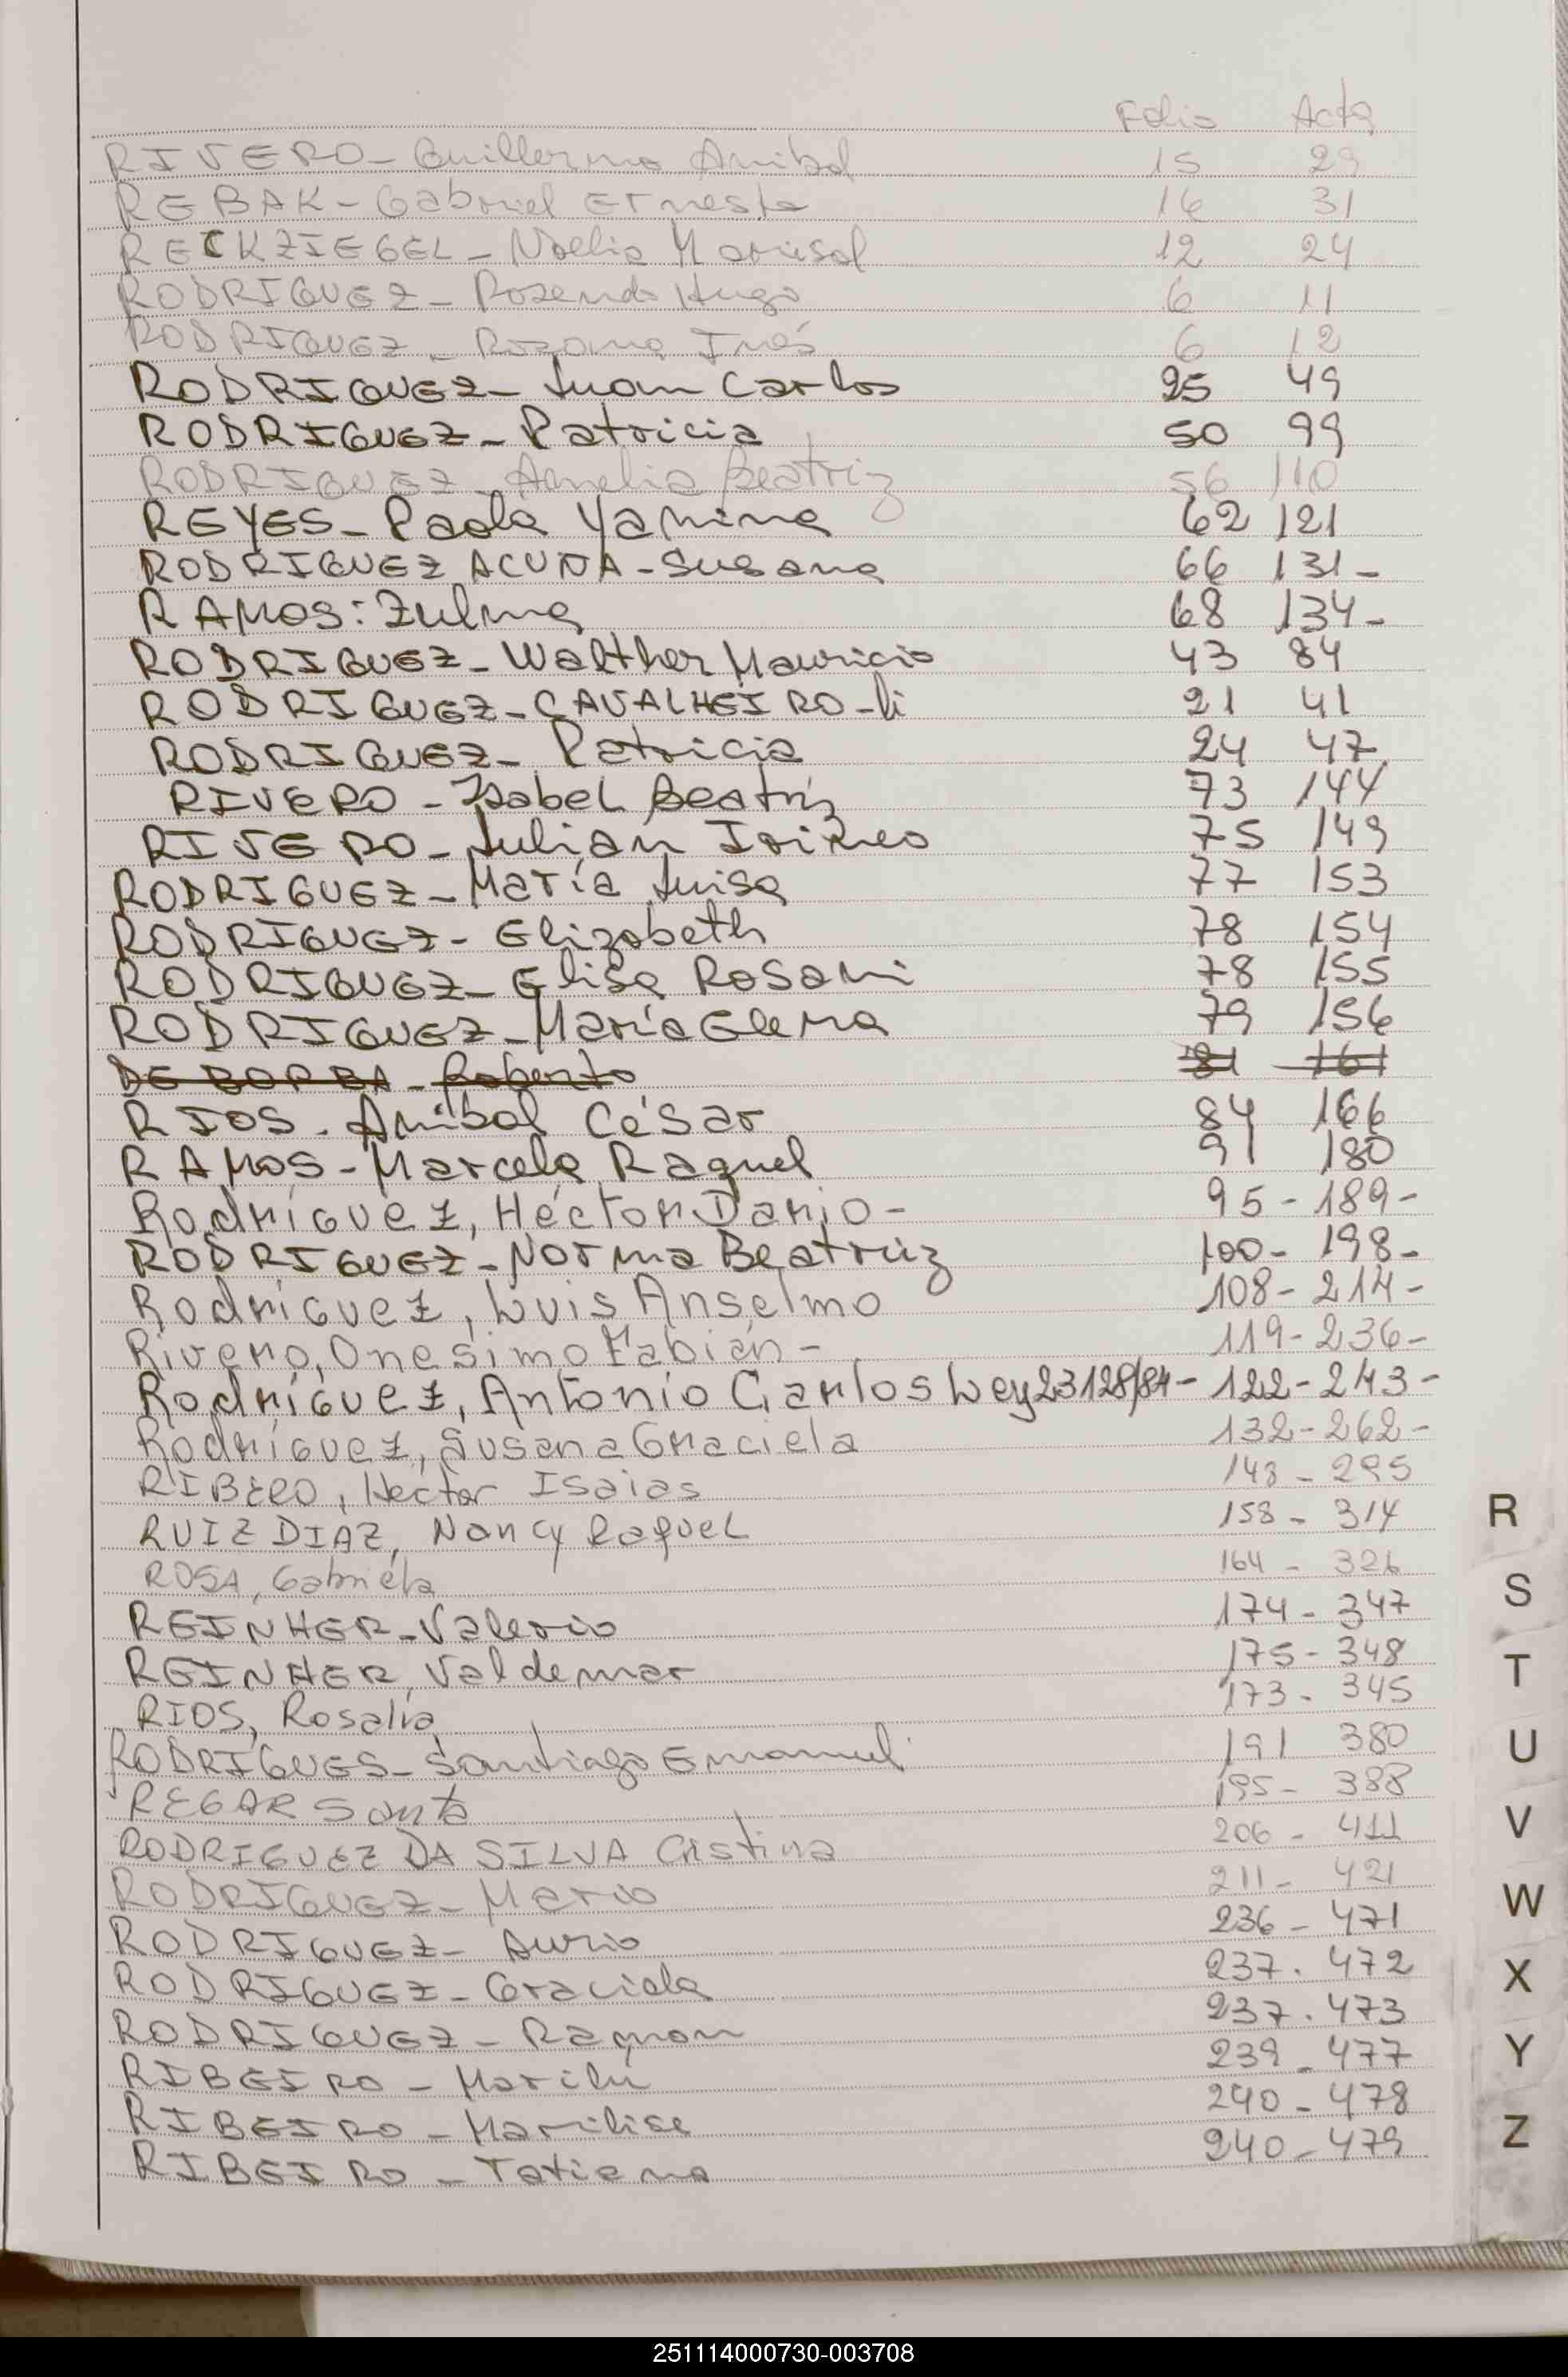 Folio Acta
RIVERO - Guillermo Anibal 15 29
REBAK - Gabriel Ernesto 16 31
RECKZIEGEL - Noelia Marisol 12 24
RODRIGUEZ - Rosendo Hugo 6 11
RODRIGUEZ - Rozana Inés 6 12
RODRIGUEZ - Juan Carlos 25 49
RODRIGUEZ - Patricia 50 99
RODRIGUEZ - Amelia Beatriz 56 110
REYES - Paola Yanina 62 121
RODRIGUEZ ACUNA - Susana 66 131 -
RAMOS: Zulma 68 134 -
RODRIGUEZ - Walther Mauricio 43 84
RODRIGUEZ - CAVALHEIRO - li 21 41
RODRIGUEZ - Patricia 24 47
RIVERO - Isabel Beatriz 73 144
RIVERO - Julián Irineo 75 149
RODRIGUEZ - María Luisa 77 153
RODRIGUEZ - Elizabeth 78 154
RODRIGUEZ - Elisa Rosani 78 155
RODRIGUEZ - María Elena 79 156
DE BORBA - Roberto 81 161
RIOS - Anibal César 84 166
RAMOS - Marcela Raquel 91 180
Rodríguez, Héctor Dario - 95 - 189 -
RODRIGUEZ - Norma Beatriz 100 - 198 -
Rodríguez, Luis Anselmo 108 - 214 -
Rivero, Onesimo Fabián - 119 - 236 -
Rodríguez, Antonio Carlos Ley 23128/84 - 122 - 243 -
Rodríguez, Susana Graciela 132 - 262 -
RIBERO, Hector Isaias 148 - 295
RUIZ DIAZ, Nancy Raquel 158 - 314
ROSA, Gabriela 164 - 326
REINHER - Valerio 174 - 347
REINHER, Valdemar 175 - 348
RIOS, Rosalia 173 - 345
RODRIGUES - Santiago Emanuel 191 380
REGAR Santa 195 - 388
RODRIGUEZ DA SILVA Cristina 206 - 411
RODRIGUEZ - Mario 211 - 421
RODRIGUEZ - Aurio 236 - 471
RODRIGUEZ - Graciela 237 . 472
RODRIGUEZ - Ramon 237 . 473
RIBEIRO - Marilu 239 - 477
RIBEIRO - Marilise 240 - 478
RIBEIRO - Tatiana 240 - 479
R
S
T
U
V
W
X
Y
Z
251114000730-003708